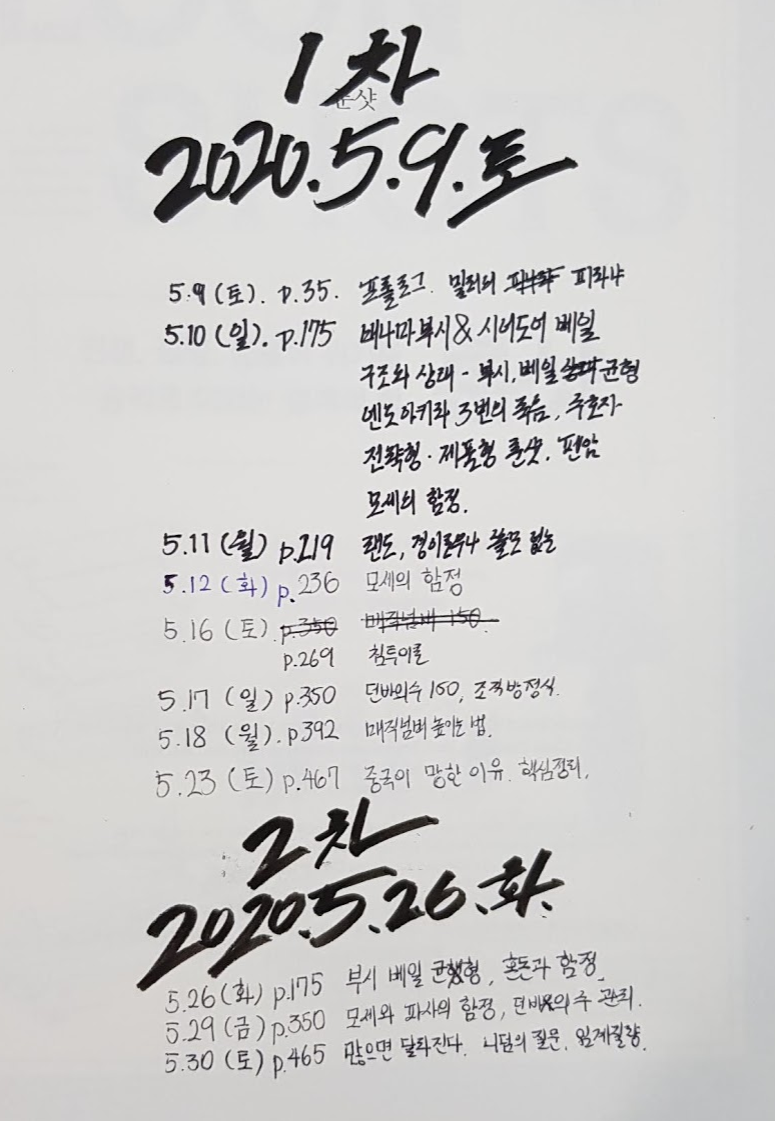 1차
룬샷
2020.5.9.토
5.9(토). p.35. 프롤로그. 밀러의 피라냐
5.10(일). p.175 버나바부시 & 시어도어 베일
구조와 상태 - 부시, 베일 균형
엔도아키라 3번의 죽음, 주호자
전략형·제품형 룬샷, 팬암
모세의 함정.
5.11(월) p.219 랜드,
5.12(화) p.236 모세의 함정
5.16(토). p.350 매직넘버 150.
p.269 침투이론
5.17(일) p.350 던바의수 150, 조직방정식.
5.18(월). p392 매직넘버 높이는 법.
5.23(토) p.467 중국이 망한 이유. 핵심정리.
2차
2020.5.26.화.
5.26(화) p.175 부시 베일 균형, 혼돈과 함정.
5.29(금) p.350 모세와 파사의 함정, 던바의 수 관리.
5.30(토) p.465 많으면 달라진다. 니덤의 질문. 임계질량.